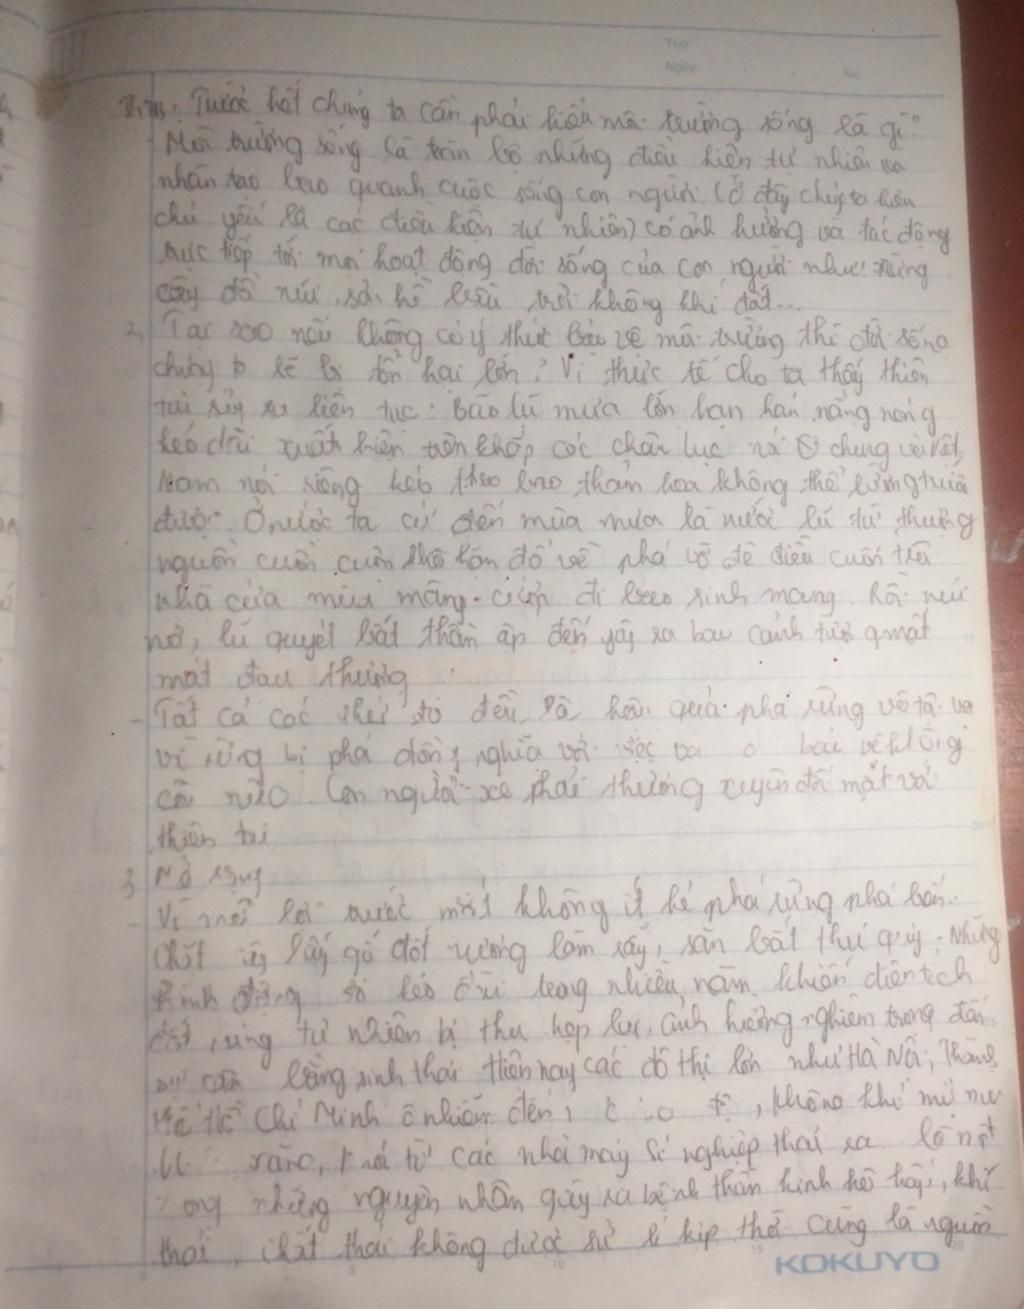 Thứ
Ngày
No.
Trước hết chúng ta cần phải hiểu môi trường sống là gì?
Môi trường sống là toàn bộ những điều kiện tự nhiên và
nhân tạo bao quanh cuộc sống con người. (Ở đây chúng ta
chủ yếu là các điều kiện tự nhiên) có ảnh hưởng và tác động
trực tiếp tới mọi hoạt động đời sống của con người như: rừng
cây đồi núi, hồ trời không khí đất...
2, Tại sao nói không có ý thức bảo vệ môi trường thì đời sống
chúng ta sẽ bị tổn hại lớn? Vì thực tế cho ta thấy thiên
tai xảy ra liên tục: Bão lũ mưa lớn hạn hán nắng nóng
kéo dài xuất hiện trên khắp các châu lục nói chung và Việt
Nam nói riêng kéo theo bao thảm họa không thể lường trước
được. Ở nước ta cứ đến mùa mưa là nước lũ từ thượng
nguồn cuồn cuộn đổ về phá vỡ đê điều cuốn trôi
nhà cửa mùa màng. cướp đi bao sinh mạng. núi
nở, lũ quyét bất thần ập đến gây ra bao cảnh mất
mát đau thương
- Tất cả các thứ đó đều là hậu quả phá rừng vô
vì rừng bị phá đồng nghĩa với việc
còn nữa. Con người sẽ phải thường xuyên đối mặt với
thiên tai
3 Mở rộng
- Vì mối lợi trước mắt không ít kẻ phá rừng phá
chặt cây lấy gỗ đốt nương làm rẫy, săn bắt thú quý. Những
hành động kéo dài trong nhiều năm khiến diện tích
đất rừng tự nhiên bị thu hẹp lại, ảnh hưởng nghiêm trọng đến
cân bằng sinh thái Hiện nay các đô thị lớn như Hà Nội, Thành
Hồ Chí Minh ô nhiễm đến, không khí mù
từ các nhà máy sí nghiệp thải ra là một
những nguyên nhân gây ra bệnh thần kinh hô hấp, khí
thải, chất thải không được sử lí kịp thời cũng là nguồn
KOKUYO